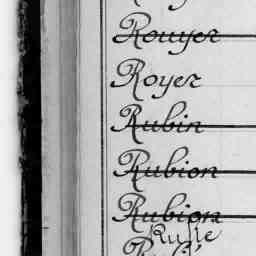 Rouyer
Royer
Rubin
Rubion
Rubion
Rusie